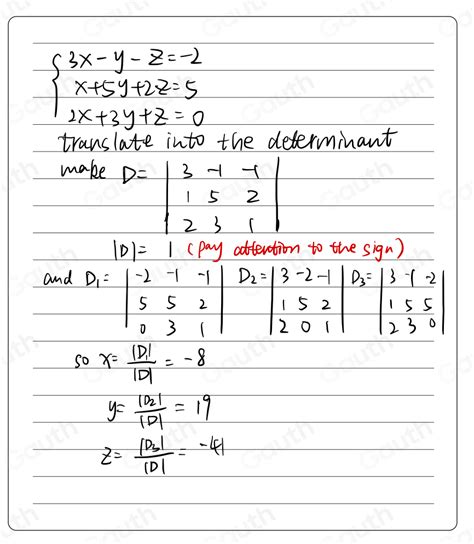 3x-y-z=-2
x+5y+2z=5
2x+3y+z=0
translate into the determinant
make D= | 3 -1 -1 |
| 1 5 2 |
| 2 3 1 |
|D|= 1 (pay attention to the sign)
and D₁= | -2 -1 -1 | D₂= | 3 -2 -1 | D₃= | 3 -1 -2 |
| 5 5 2 | | 1 5 2 | | 1 5 5 |
| 0 3 1 | | 2 0 1 | | 2 3 0 |
so x= |D₁|/|D| = -8
y= |D₂|/|D| = 19
z= |D₃|/|D| = -41